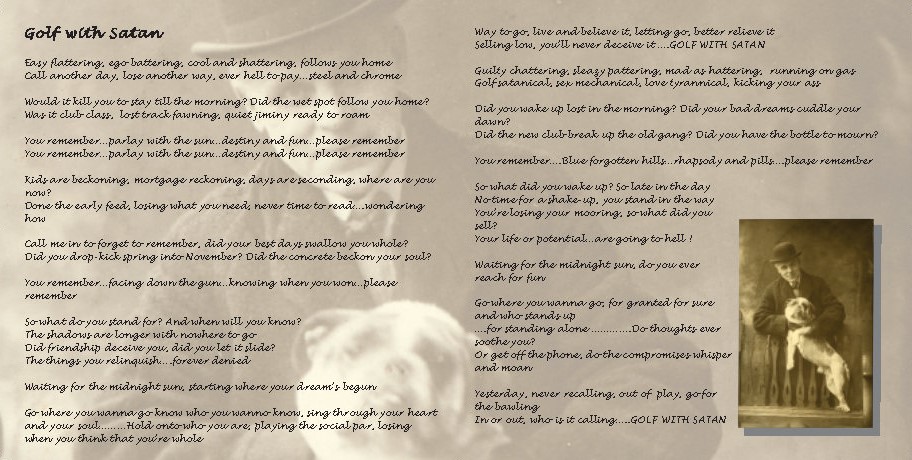 Golf with Satan
Easy flattering, ego-battering, cool and shattering, follows you home
Call another day, lose another way, ever hell to pay...steel and chrome
Would it kill you to stay till the morning? Did the wet spot follow you home?
Was it club-class, lost track fawning, quiet jiminy ready to roam
You remember...parlay with the sun...destiny and fun...please remember
You remember...parlay with the sun...destiny and fun...please remember
Kids are beckoning, mortgage reckoning, days are seconding, where are you
now?
Done the early feed, losing what you need, never time to read....wondering
how
Call me in to forget to remember, did your best days swallow you whole?
Did you drop-kick spring into November? Did the concrete beckon your soul?
You remember...facing down the gun...knowing when you won...please
remember
So what do you stand for? And when will you know?
The shadows are longer with nowhere to go
Did friendship deceive you, did you let it slide?
The things you relinquish....forever denied
Waiting for the midnight sun, starting where your dream's begun
Go where you wanna go know who you wanno know, sing through your heart
and your soul.........Hold onto who you are, playing the social par, losing
when you think that you're whole
Way to go, live and believe it, letting go, better relieve it
Selling low, you'll never deceive it ....GOLF WITH SATAN
Guilty chattering, sleazy pattering, mad as hattering, running on gas
Golf satanical, sex mechanical, love tyrannical, kicking your ass
Did you wake up lost in the morning? Did your bad dreams cuddle your
dawn?
Did the new club break up the old gang? Did you have the bottle to mourn?
You remember....Blue forgotten hills...rhapsody and pills....please remember
So what did you wake up? So late in the day
No time for a shake-up, you stand in the way
You're losing your mooring, so what did you
sell?
Your life or potential...are going to hell !
Waiting for the midnight sun, do you ever
reach for fun
Go where you wanna go, for granted for sure
and who stands up
....for standing alone .............Do thoughts ever
soothe you?
Or get off the phone, do the compromises whisper
and moan
Yesterday, never recalling, out of play, go for
the bawling
In or out, who is it calling.....GOLF WITH SATAN